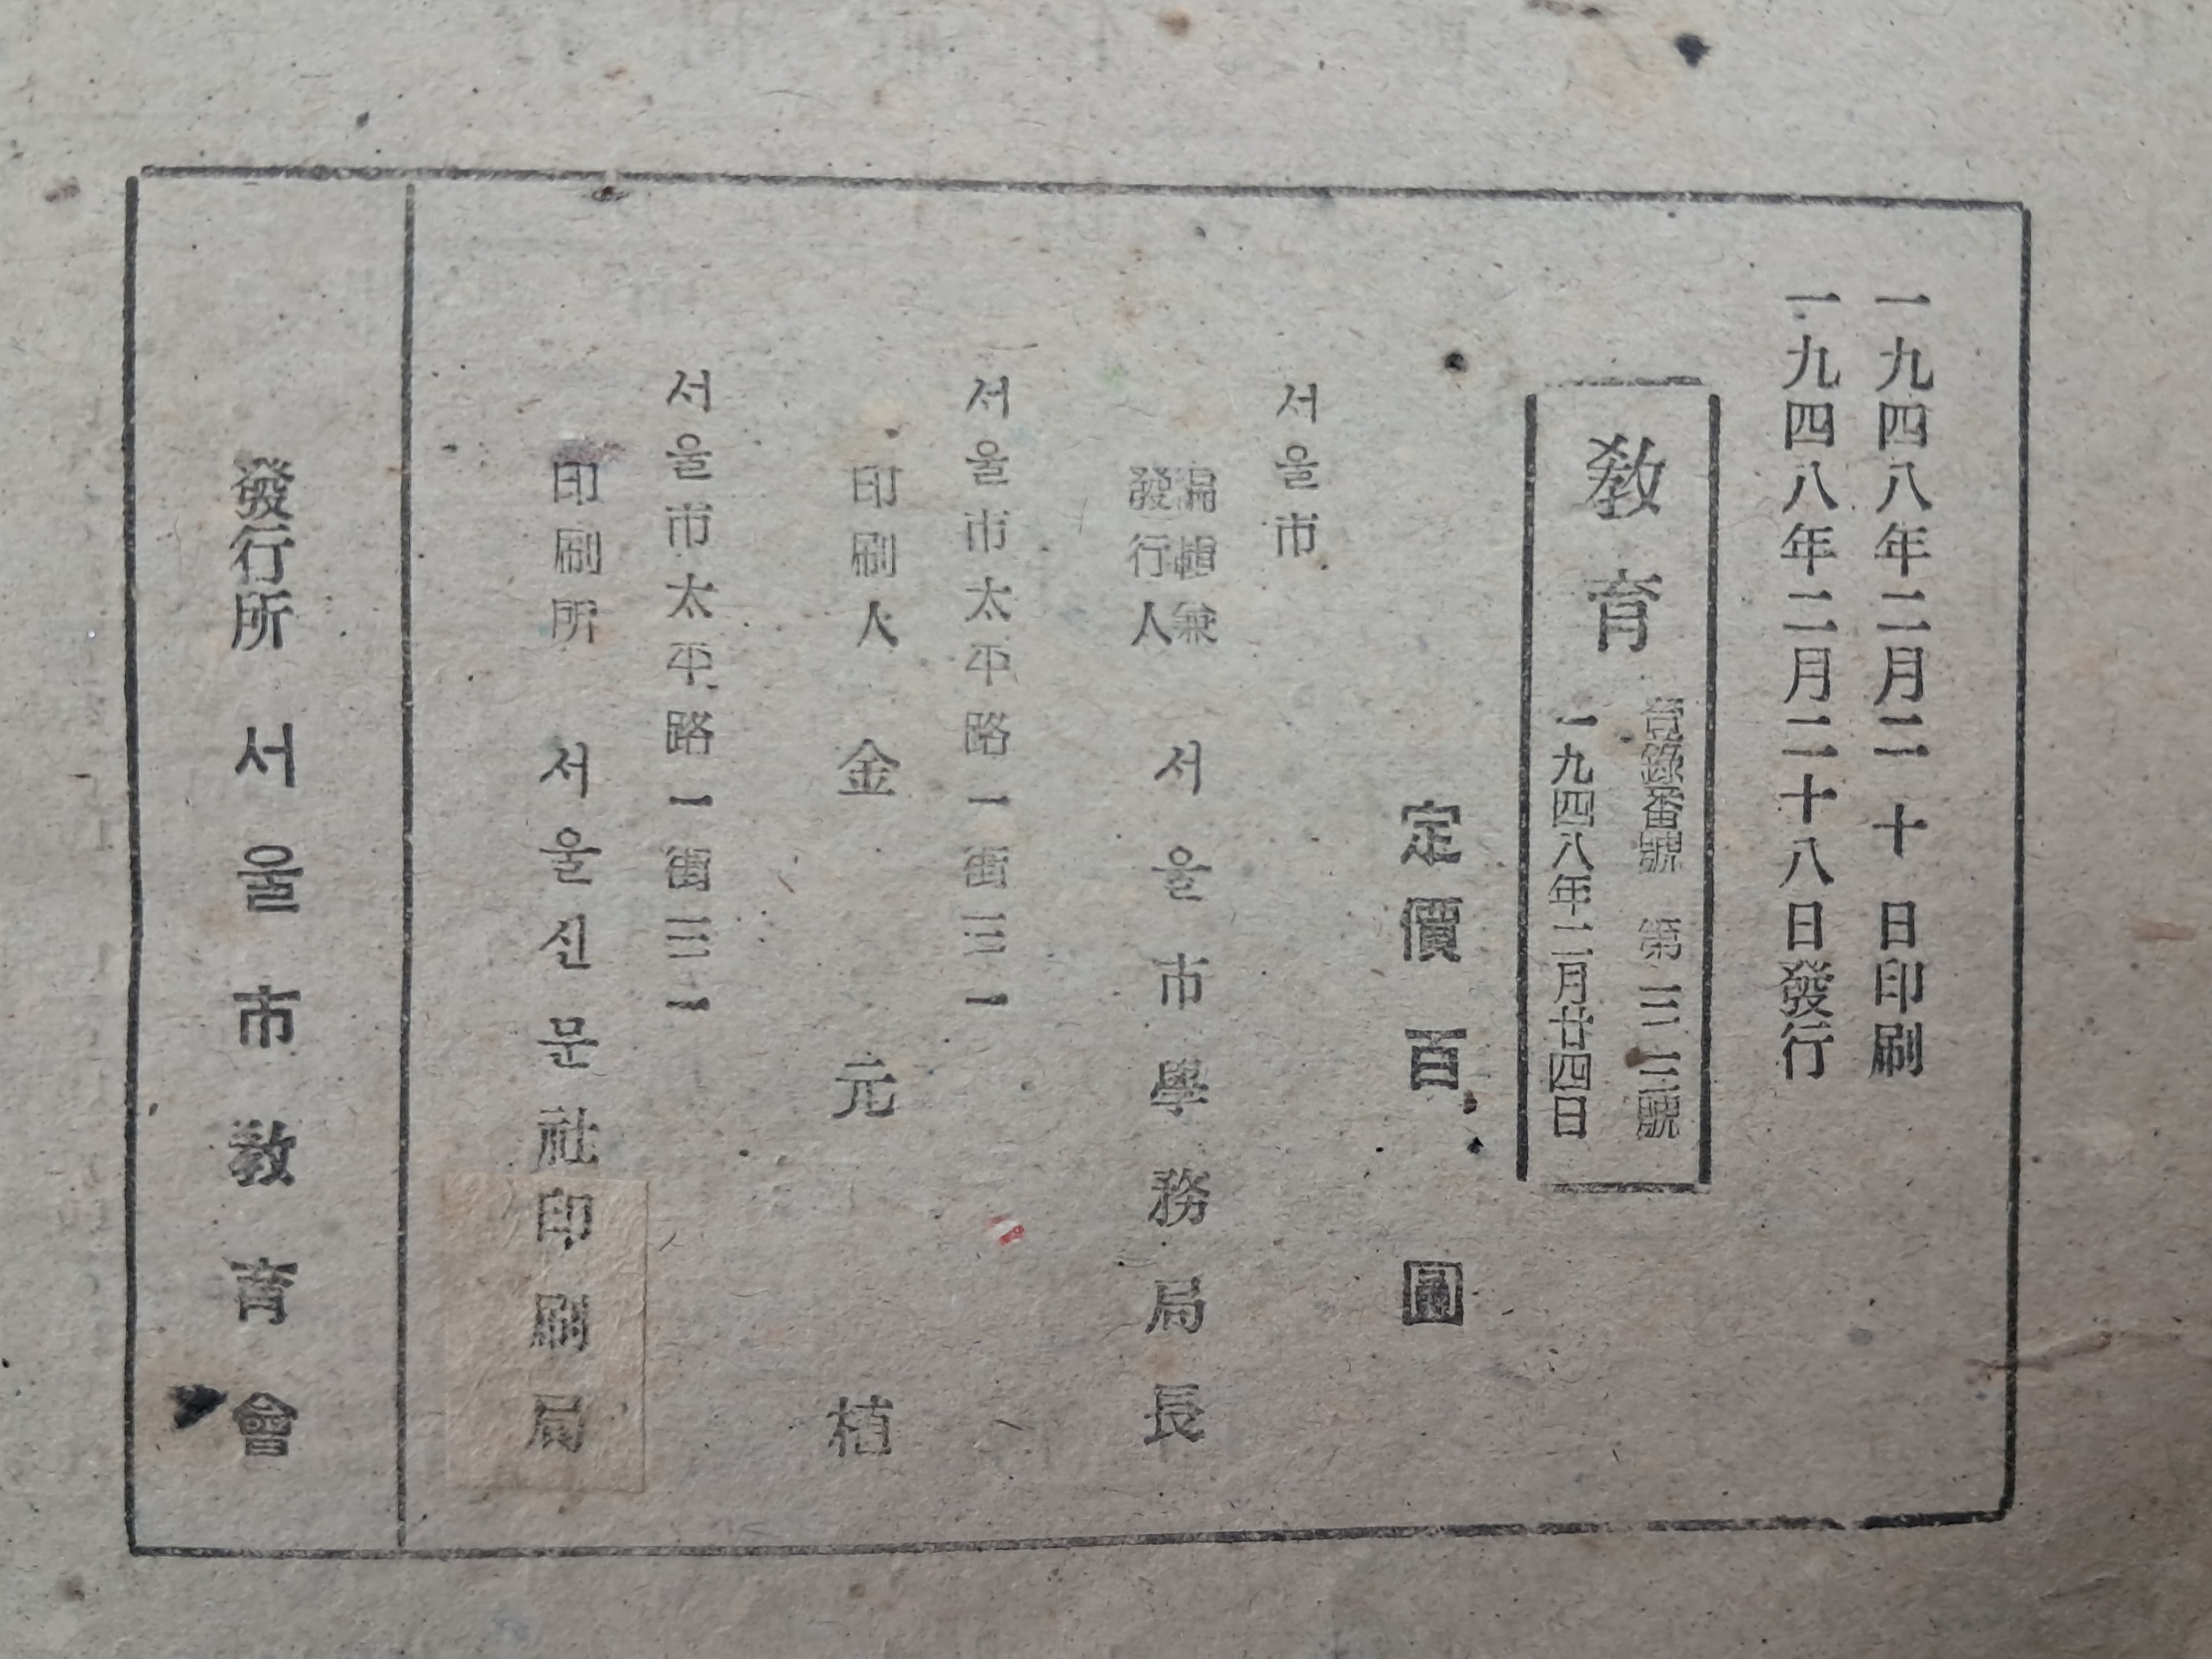 一九四八年二月二十日印刷
一九四八年二月二十八日發行
敎育
登錄番號 第 號
一九四八年二月廿四日
定價百圓
서울市
編輯兼
發行人 서울市學務局長
서울市太平路一街三一
印刷人 金元植
서울市太平路一街三一
印刷所 서울신문社印刷局
發行所 서울市敎育會